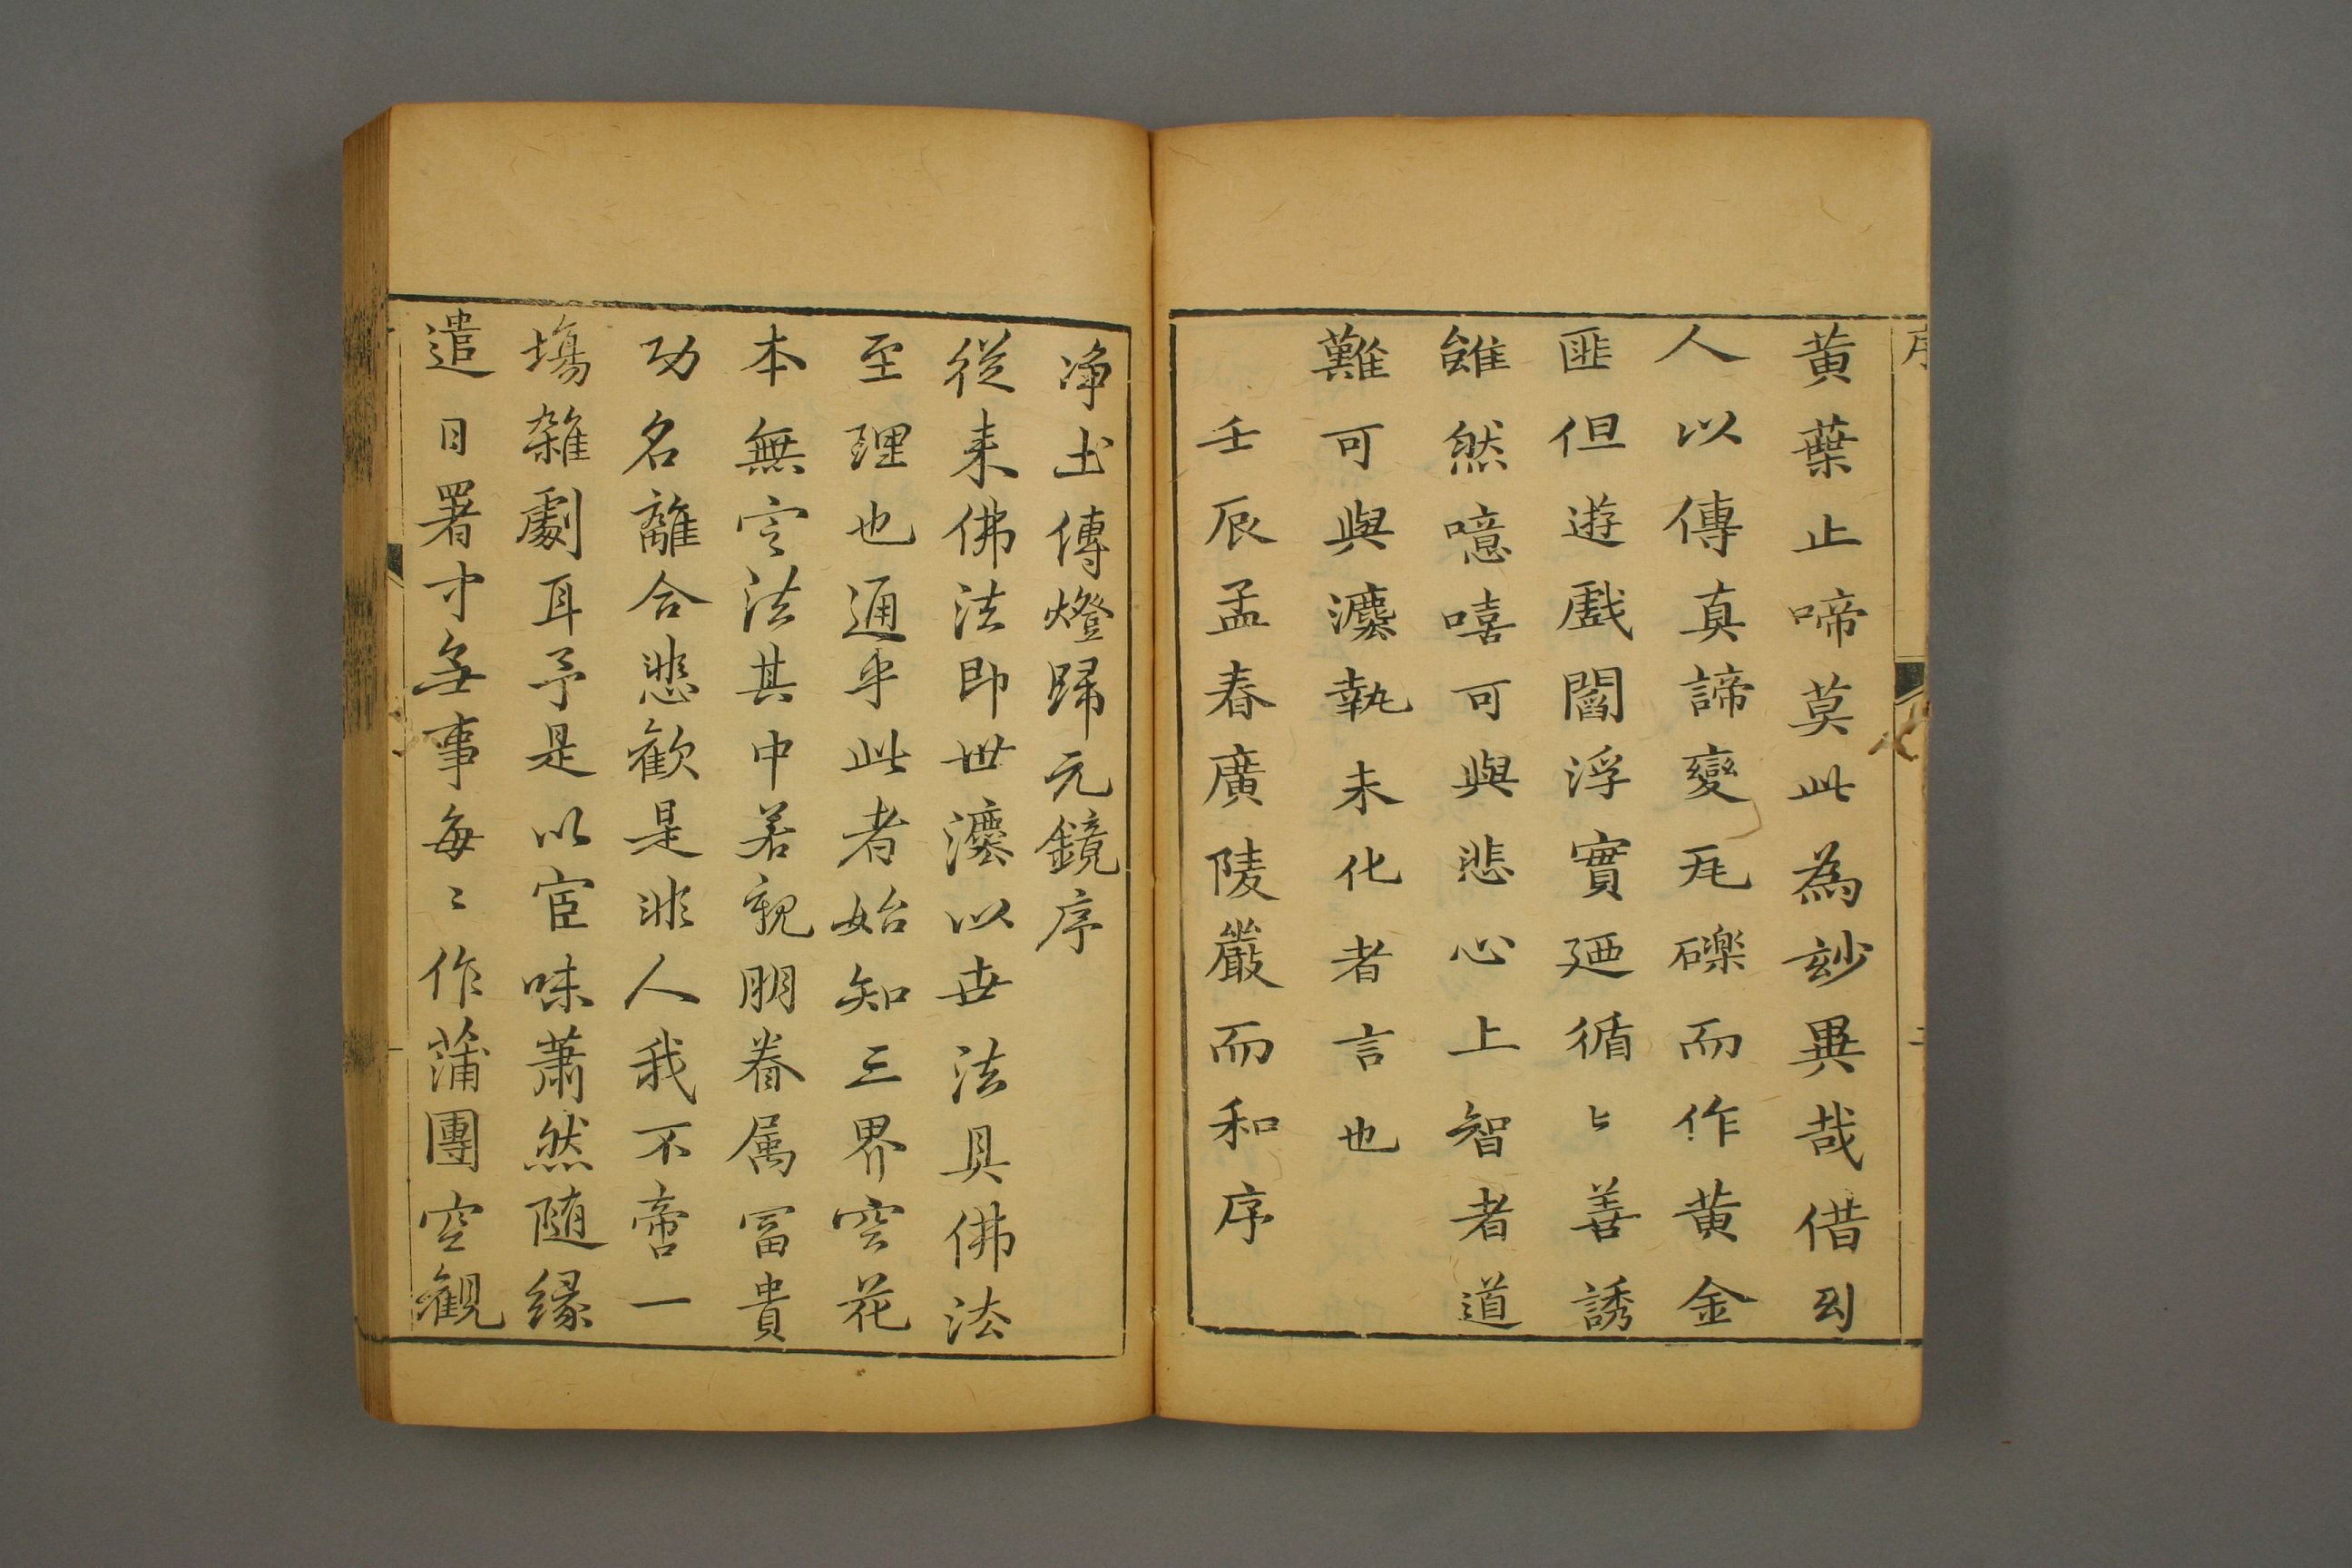 序
黄葉止啼莫此為玅異哉借幻
人以傳真諦變瓦礫而作黄金
匪但遊戲閻浮實廼循〻善誘
雖然噫嘻可與悲心上智者道
難可與灋執未化者言也
壬辰孟春廣陵嚴而和序
净土傳燈歸元鏡序
從来佛法即世灋以世法具佛法
至理也通乎此者始知三界空花
本無實法其中若親朋眷属冨貴
功名離合悲歡是非人我不啻一
塲雜劇耳予是以宦味蕭然随縁
遣日署中無事每〻作蒲團空觀